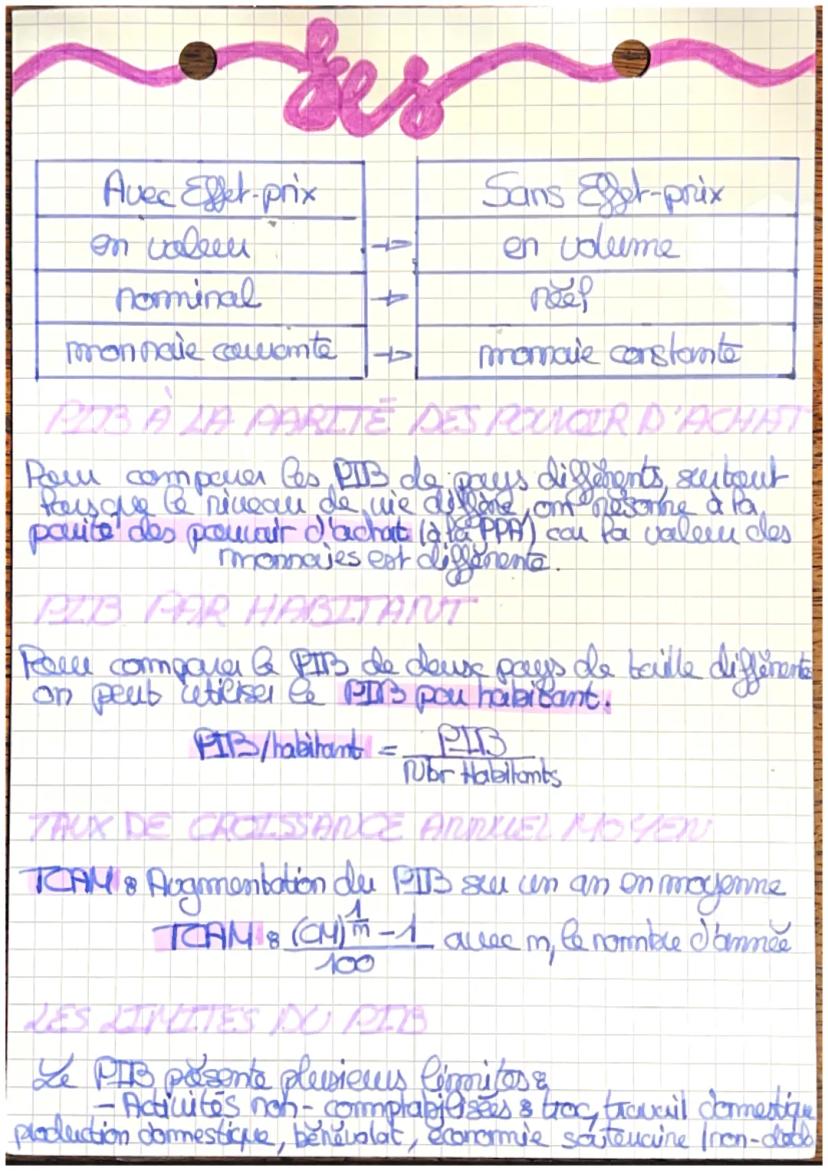 Ses
Avec Effet-prix Sans Effet-prix
en valeur → en volume
nominal → réel
monnaie courante → monnaie constante
PIB À LA PARITÉ DES POUVOIR D'ACHAT
Pour comparer les PIB de pays différents, surtout
lorsque le niveau de vie diffère, on résonne à la
parité des pouvoir d'achat (à la PPA) car la valeur des
monnaies est différente.
PIB PAR HABITANT
Pour comparer le PIB de deux pays de taille différente
on peut utiliser le PIB par habitant.
PIB/habitant = PIB
Nbr Habitants
TAUX DE CROISSANCE ANNUEL MOYEN
TCAM : Augmentation du PIB sur un an en moyenne
TCAM : (CM)^1/n - 1 avec n, le nombre d'année
100
LES LIMITES DU PIB
Le PIB présente plusieurs limites :
- Activités non-comptabilisées : troc, travail domestique
production domestique, bénévolat, économie souteraine (non-décla